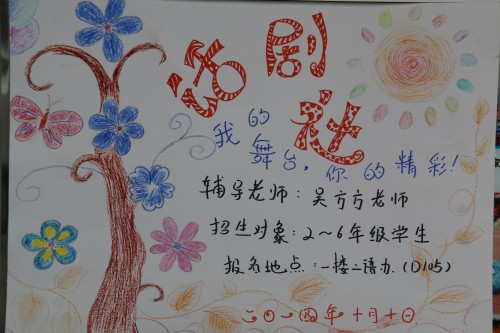 话剧社
我的舞台，你的精彩！
辅导老师：吴方方老师
招生对象：2～6年级学生
报名地点：一楼二语办（D105）
二〇一四年十月十日